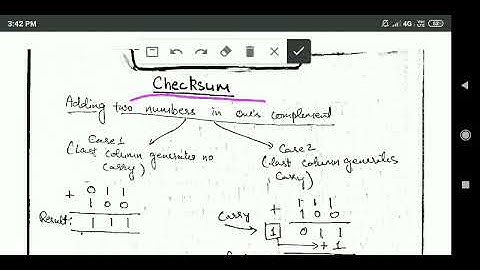 3:42 PM
4G
Checksum
Adding two numbers in one's complement
Case 1
(last column generates no
carry)
Case 2
(last column generates
carry)
0 1 1
+ 1 0 0
Result: 1 1 1
1 1 1
+ 1 0 0
carry → 1 0 1 1
→ + 1